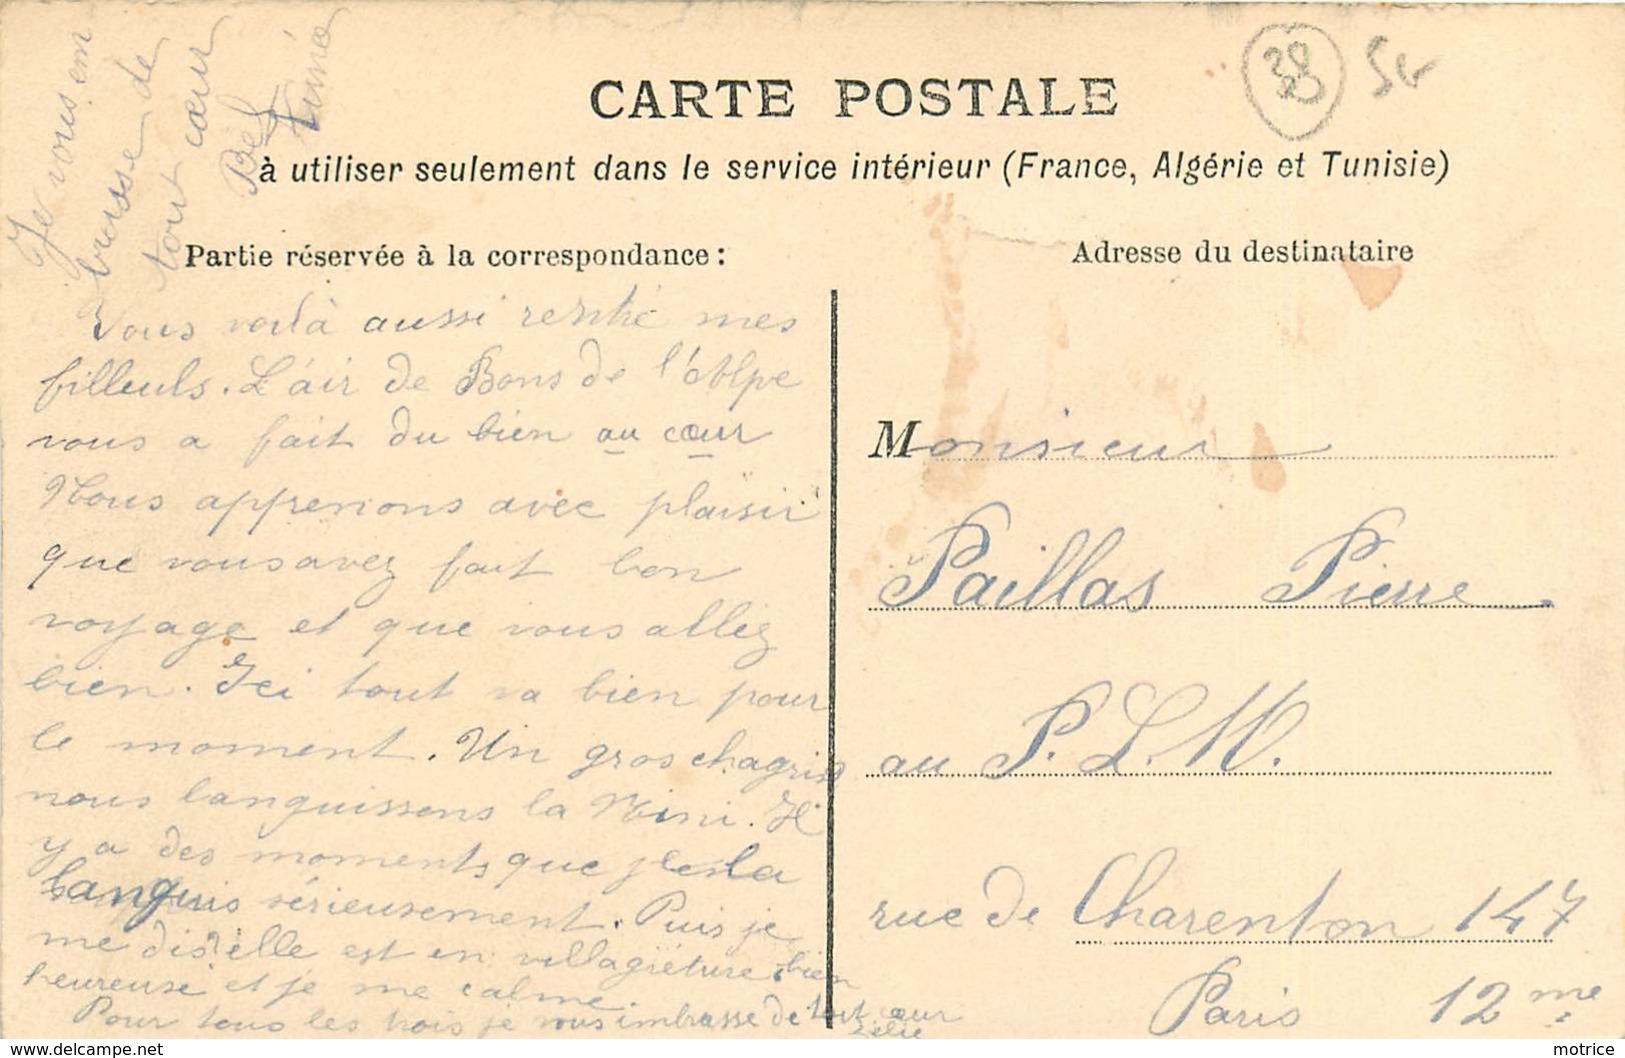 Je vous em
brasse de
tout cœur
38
CARTE POSTALE
à utiliser seulement dans le service intérieur (France, Algérie et Tunisie)
Partie réservée à la correspondance :
Adresse du destinataire
Vous voilà aussi mes
filleuls. L'air de Bons de l'Alpe
vous a fait du bien au cœur
Nous apprenons avec plaisir
que vous avez fait bon
voyage et que vous allez
bien. Ici tout va bien pour
le moment. Un gros chagrin
nous languissons la Nini. Il
y a des moments que je la
languis sérieusement. Puis je
me dis elle est en villagieture bien
heureuse et je me calme.
Pour tous les trois je vous embrasse de tout cœur
Zélie
Monsieur
Paillas Pierre
au P. L. M.
rue de Charenton 147
Paris 12me
motrice